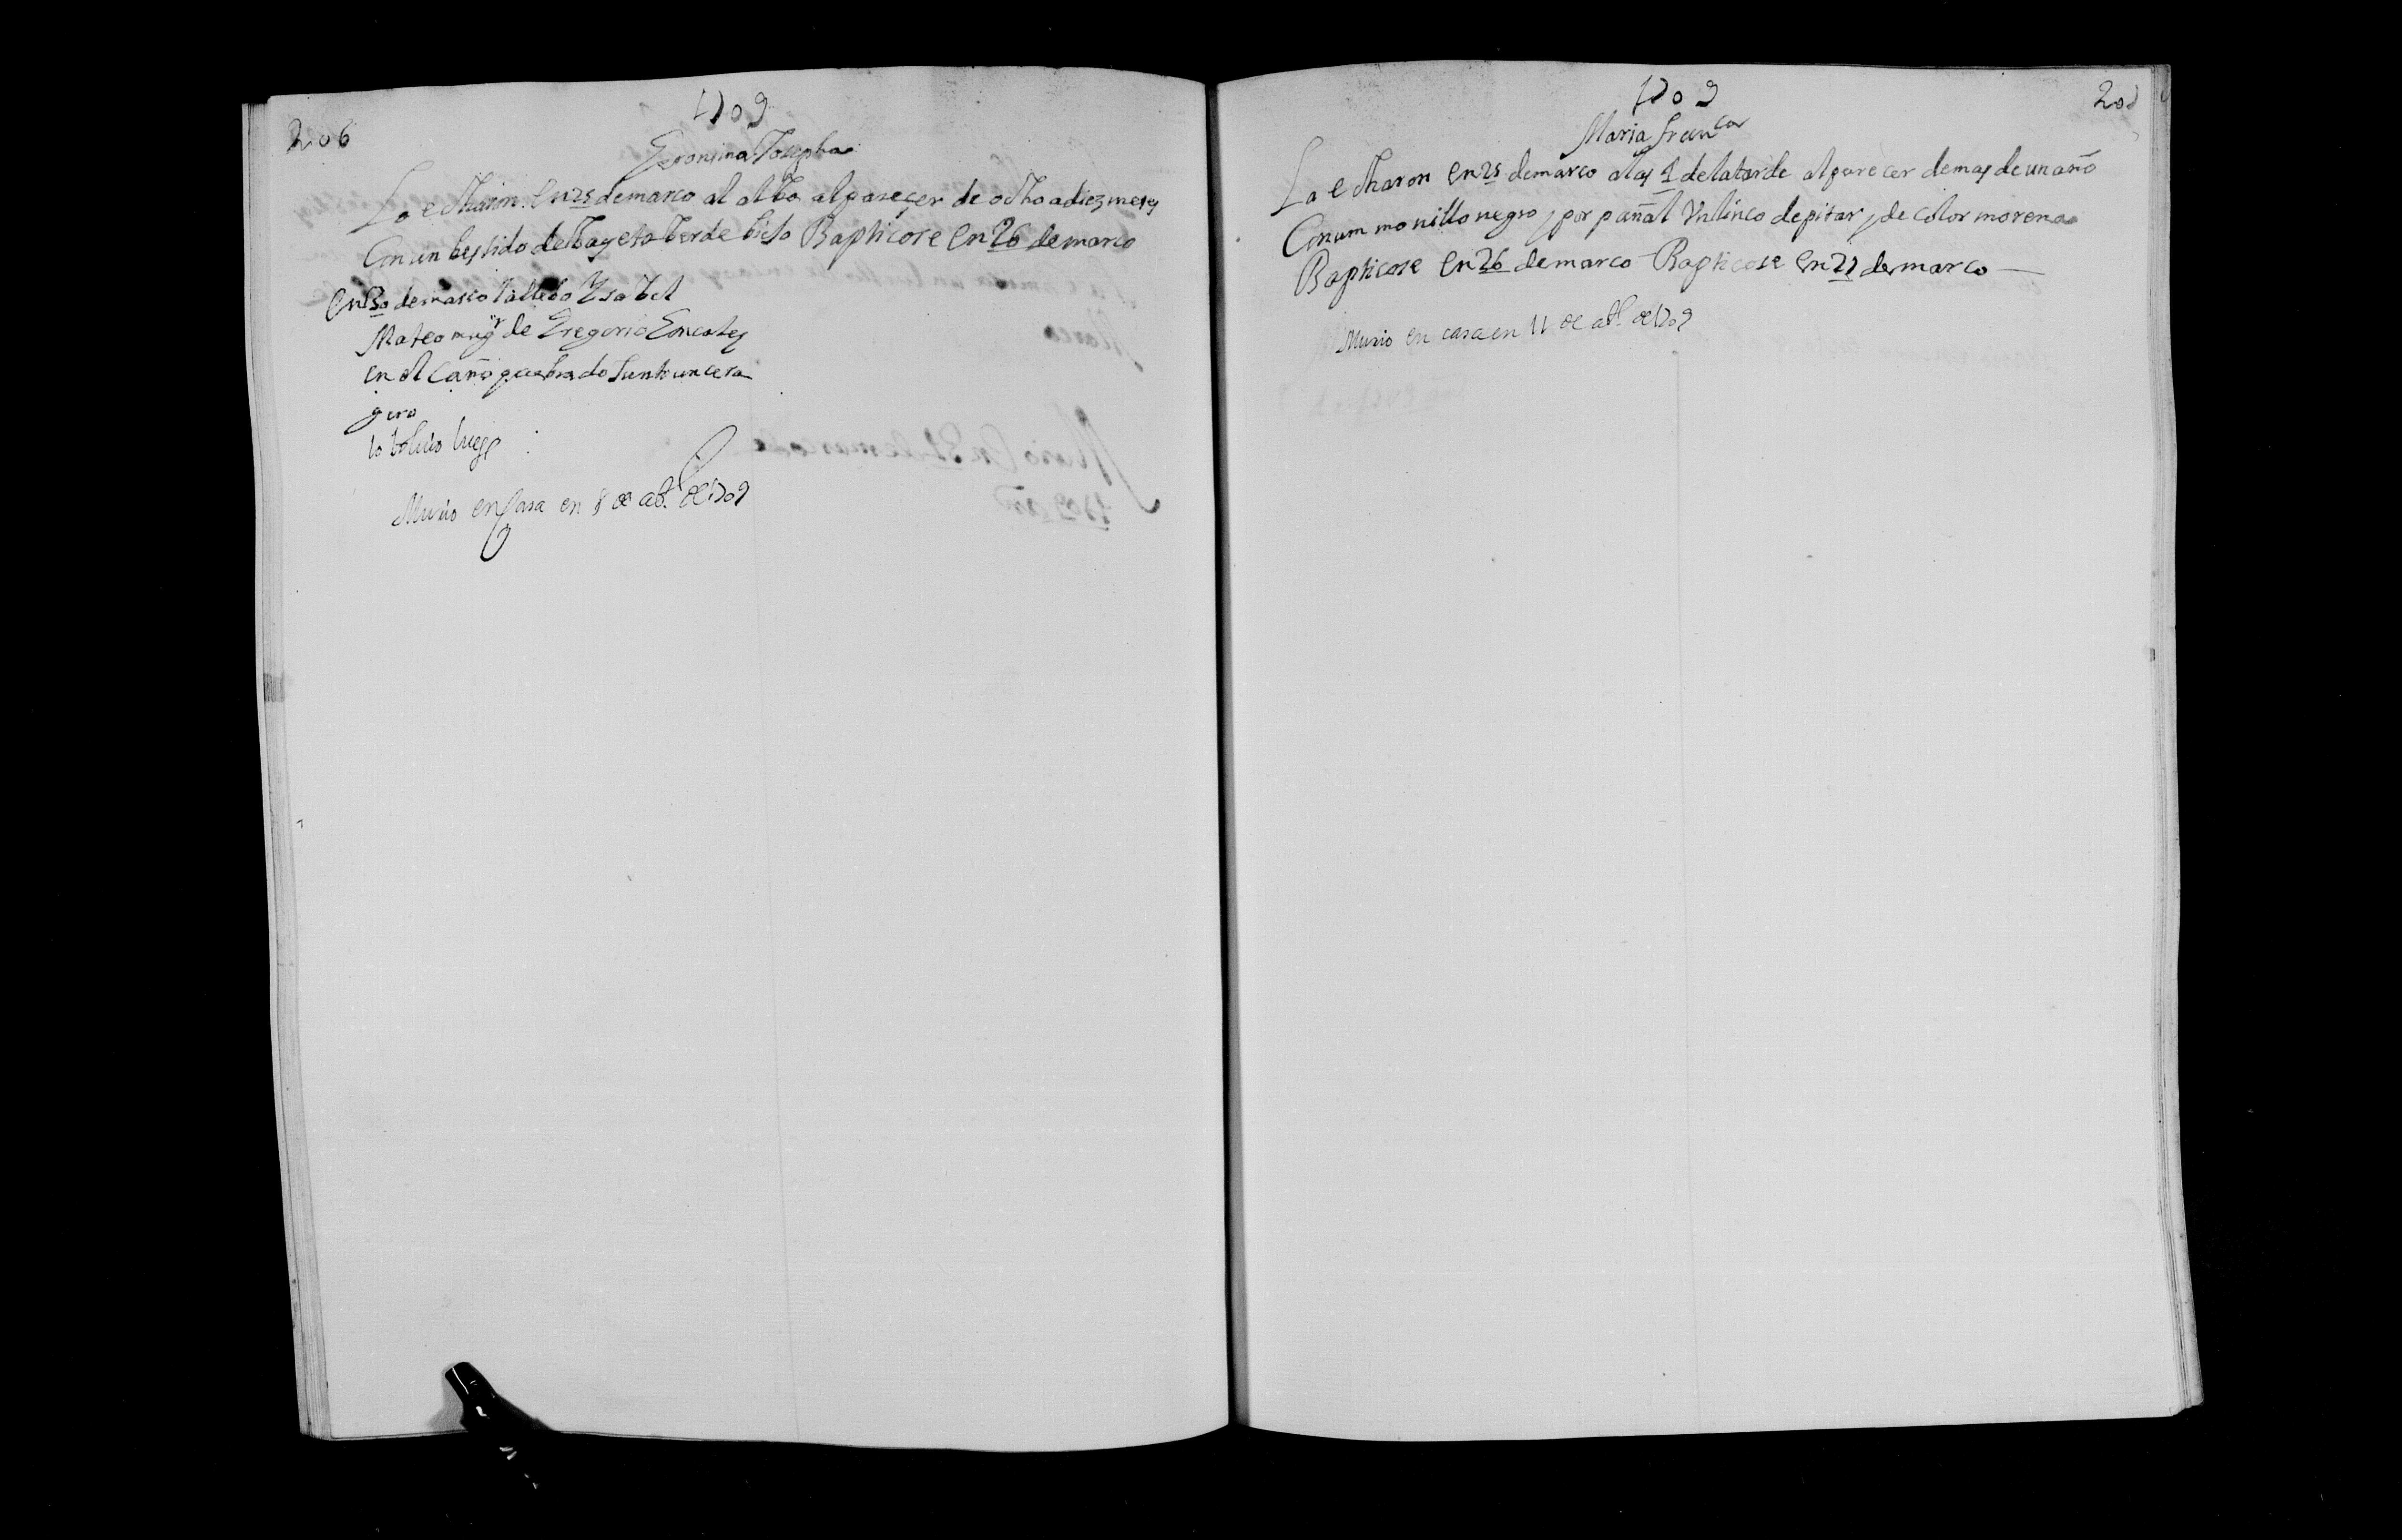 206
1709
Geronima Josepha
La echaron en 25 de marco al alba al pareçer de ocho a diez meses
Con un bestido de bayeta berde bieto Bapticose en 26 de marco
en 30 de marco la llebo Ysabel
Mateo mugr de Gregorio
en el Caño quebrado Junto un cera
gero
la bolbio luego
Murio en Casa en 8 de abl. de 1709
1709
Maria franca
La echaron en 25 de marco a las 1 de la tarde al parecer de mas de un año
Con um monillo negro y por pañal de pitar y de color morena
Bapticose en 26 de marco Bapticose en 27 de marco
Murio en casa en 11 de abl. de 1709